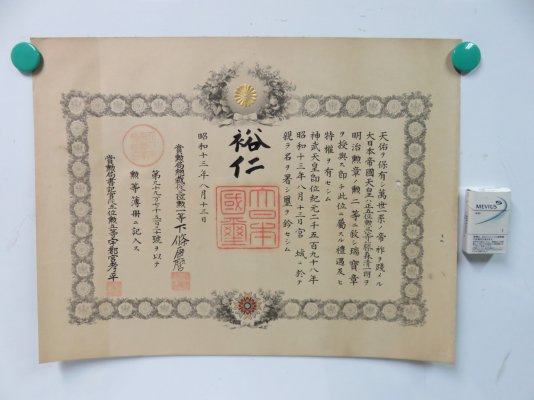 天佑ヲ保有シ萬世一系ノ帝祚ヲ踐メル
大日本帝國天皇ハ正五位勳三等
明治勳章ノ勳二等ニ敍シ瑞寶章
ヲ授與ス即チ此位ニ屬スル禮遇及ヒ
特權ヲ有セシム
神武天皇即位紀元二千五百九十八年
昭和十三年八月十三日宮城ニ於テ
親ラ名ヲ署シ璽ヲ鈐セシム
裕仁
大日本國璽
昭和十三年八月十三日
賞勳局總裁從三位勳一等下條康麿
號ヲ以テ
勳等簿冊ニ記入ス
賞勳局書記官
MEVIUS